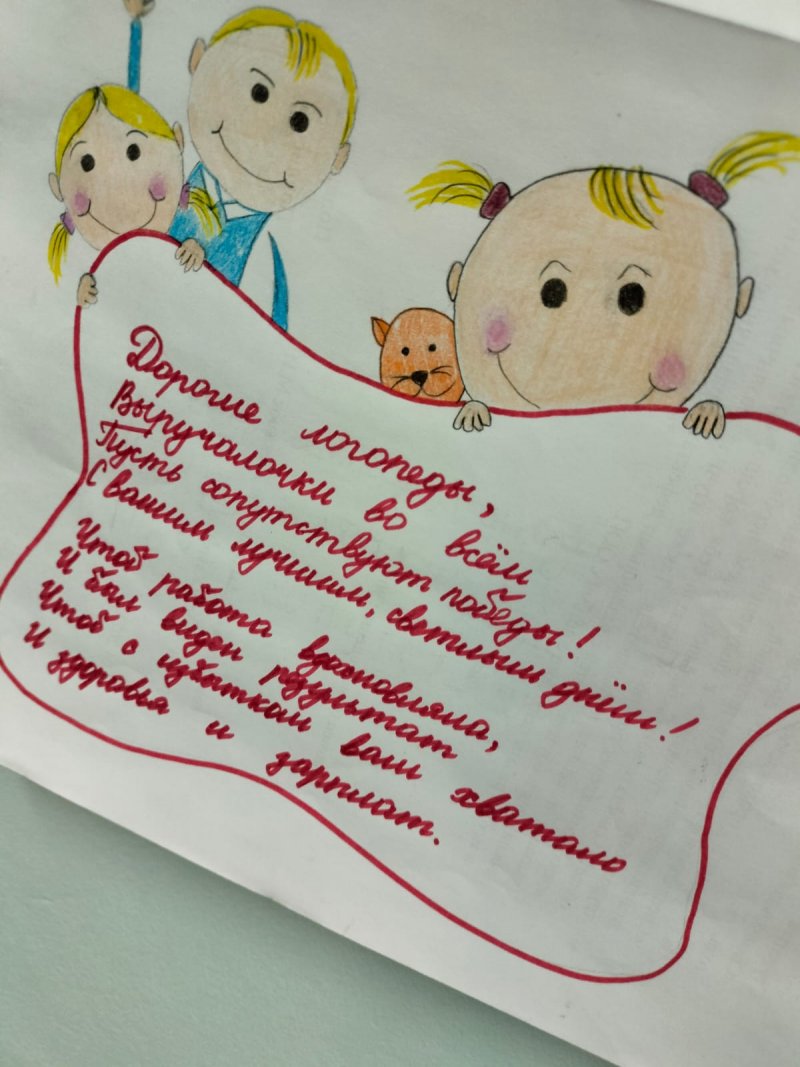 Дорогие логопеды,
Выручалочки во всём
Пусть сопутствуют победы!
С вашим лучшим, светлым днём!
Чтоб работа вдохновляла,
И был виден результат
Чтоб с избытком вам хватало
И здоровья и зарплат.